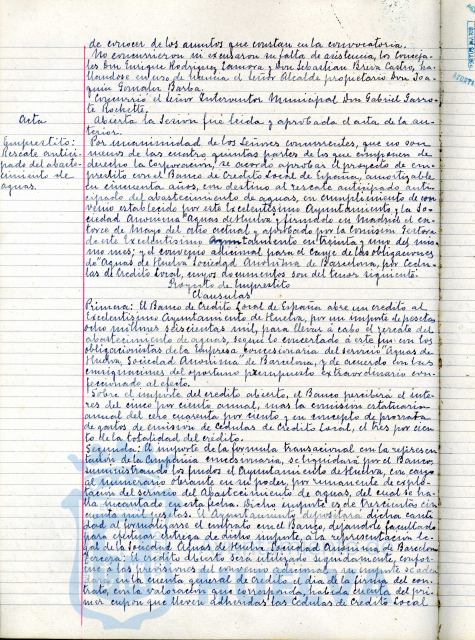 de conocer de los asuntos que constan en la convocatoria.
No concurrieron ni excusaron su falta de asistencia, los Conceja-
les Don Enrique Rodríguez Zamora y Don Sebastian Breva Castro, ha-
llandose en uso de licencia el señor Alcalde propietario Don Joa-
quín González Barba.
Concurrió el señor Interventor Municipal Don Gabriel
Rochette.
Acta
Abierta la Sesión fue leida y aprobada el acta de la an-
terior.
Empréstito:
Rescate antici-
pado del abaste-
cimiento de
aguas.
Por unanimidad de los Señores concurrentes, que no son
menos de las cuatro quintas partes de los que componen de
derecho la Corporación, se acordó aprobar el proyecto de em-
prestito con el Banco de Credito Local de España, amortizable
en cincuenta años, con destino al rescate anticipado anti-
cipado del abastecimiento de aguas, en cumplimiento de con-
venio establecido por este Excelentísimo Ayuntamiento y la So-
ciedad Anonima "Aguas de Huelva" y firmado en Madrid el ca-
torce de Mayo del año actual y aprobado por la Comisión Gestora
de este Excelentísimo Ayuntamiento en treinta y uno del mis-
mo mes; y el convenio adicional para el canje de las obligaciones
de "Aguas de Huelva Sociedad Anonima" de Barcelona, por Cedu-
las de Credito Local, cuyos documentos son del tenor siguiente:
Proyecto de Empréstito
Clausulas
Primera: El Banco de Credito Local de España abre un credito al
Excelentísimo Ayuntamiento de Huelva, por un importe de pesetas
ocho millones seiscientas mil, para llevar a cabo el rescate del
abastecimiento de aguas, según lo concertado a este fin con los
obligacionistas de la Empresa concesionaria del servicio "Aguas de
Huelva, Sociedad Anonima" de Barcelona, y de acuerdo con las
consignaciones del oportuno presupuesto extraordinario con-
feccionado al efecto.
Sobre el importe del credito abierto, el Banco percibirá el inte-
res del cinco por ciento anual, mas la comisión estatutaria
anual del cero cuarenta por ciento y en concepto de prorrata
de gastos de emisión de Cédulas de Credito Local, el tres por cien-
to de la totalidad del crédito.
Segunda: El importe de la formula transacional con la represen-
tación de la Compañia concesionaria, se liquidará por el Banco,
suministrando los fondos el Ayuntamiento de Huelva, con cargo
al numerario obrante en su poder, por remanente de explo-
tación del servicio del Abastecimiento de aguas, del cual se ha-
lla incautado en esta fecha. Dicho importe es de trescientas cin-
cuenta mil pesetas. El Ayuntamiento depositará dicha canti-
dad al formalizarse el contrato en el Banco, dejandole facultado
para efectuar entrega de dicho importe, a la representación le-
gal de la Sociedad "Aguas de Huelva Sociedad Anonima" de Barcelona
Tercera: El crédito abierto será utilizado seguidamente, confor-
me a las previsiones del convenio adicional, y su importe se
en la cuenta general de Credito el dia de la firma del con-
trato, con la valoración que corresponda, habida cuenta del pri-
mer cupon que lleven adheridas las Cédulas de Credito Local